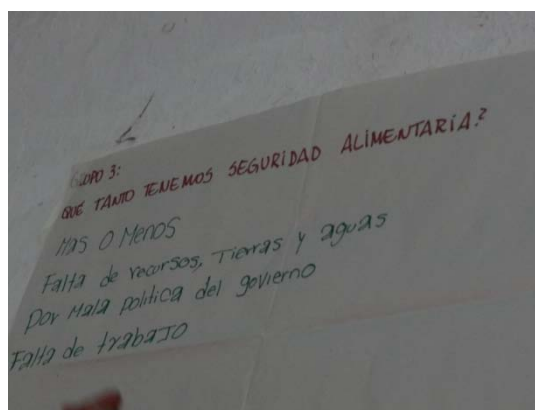 GRUPO 3:
QUÉ TANTO TENEMOS SEGURIDAD ALIMENTARIA?
Mas O Menos
Falta de recursos, Tierras y aguas
Por Mala politica del govierno
Falta de trabaJO